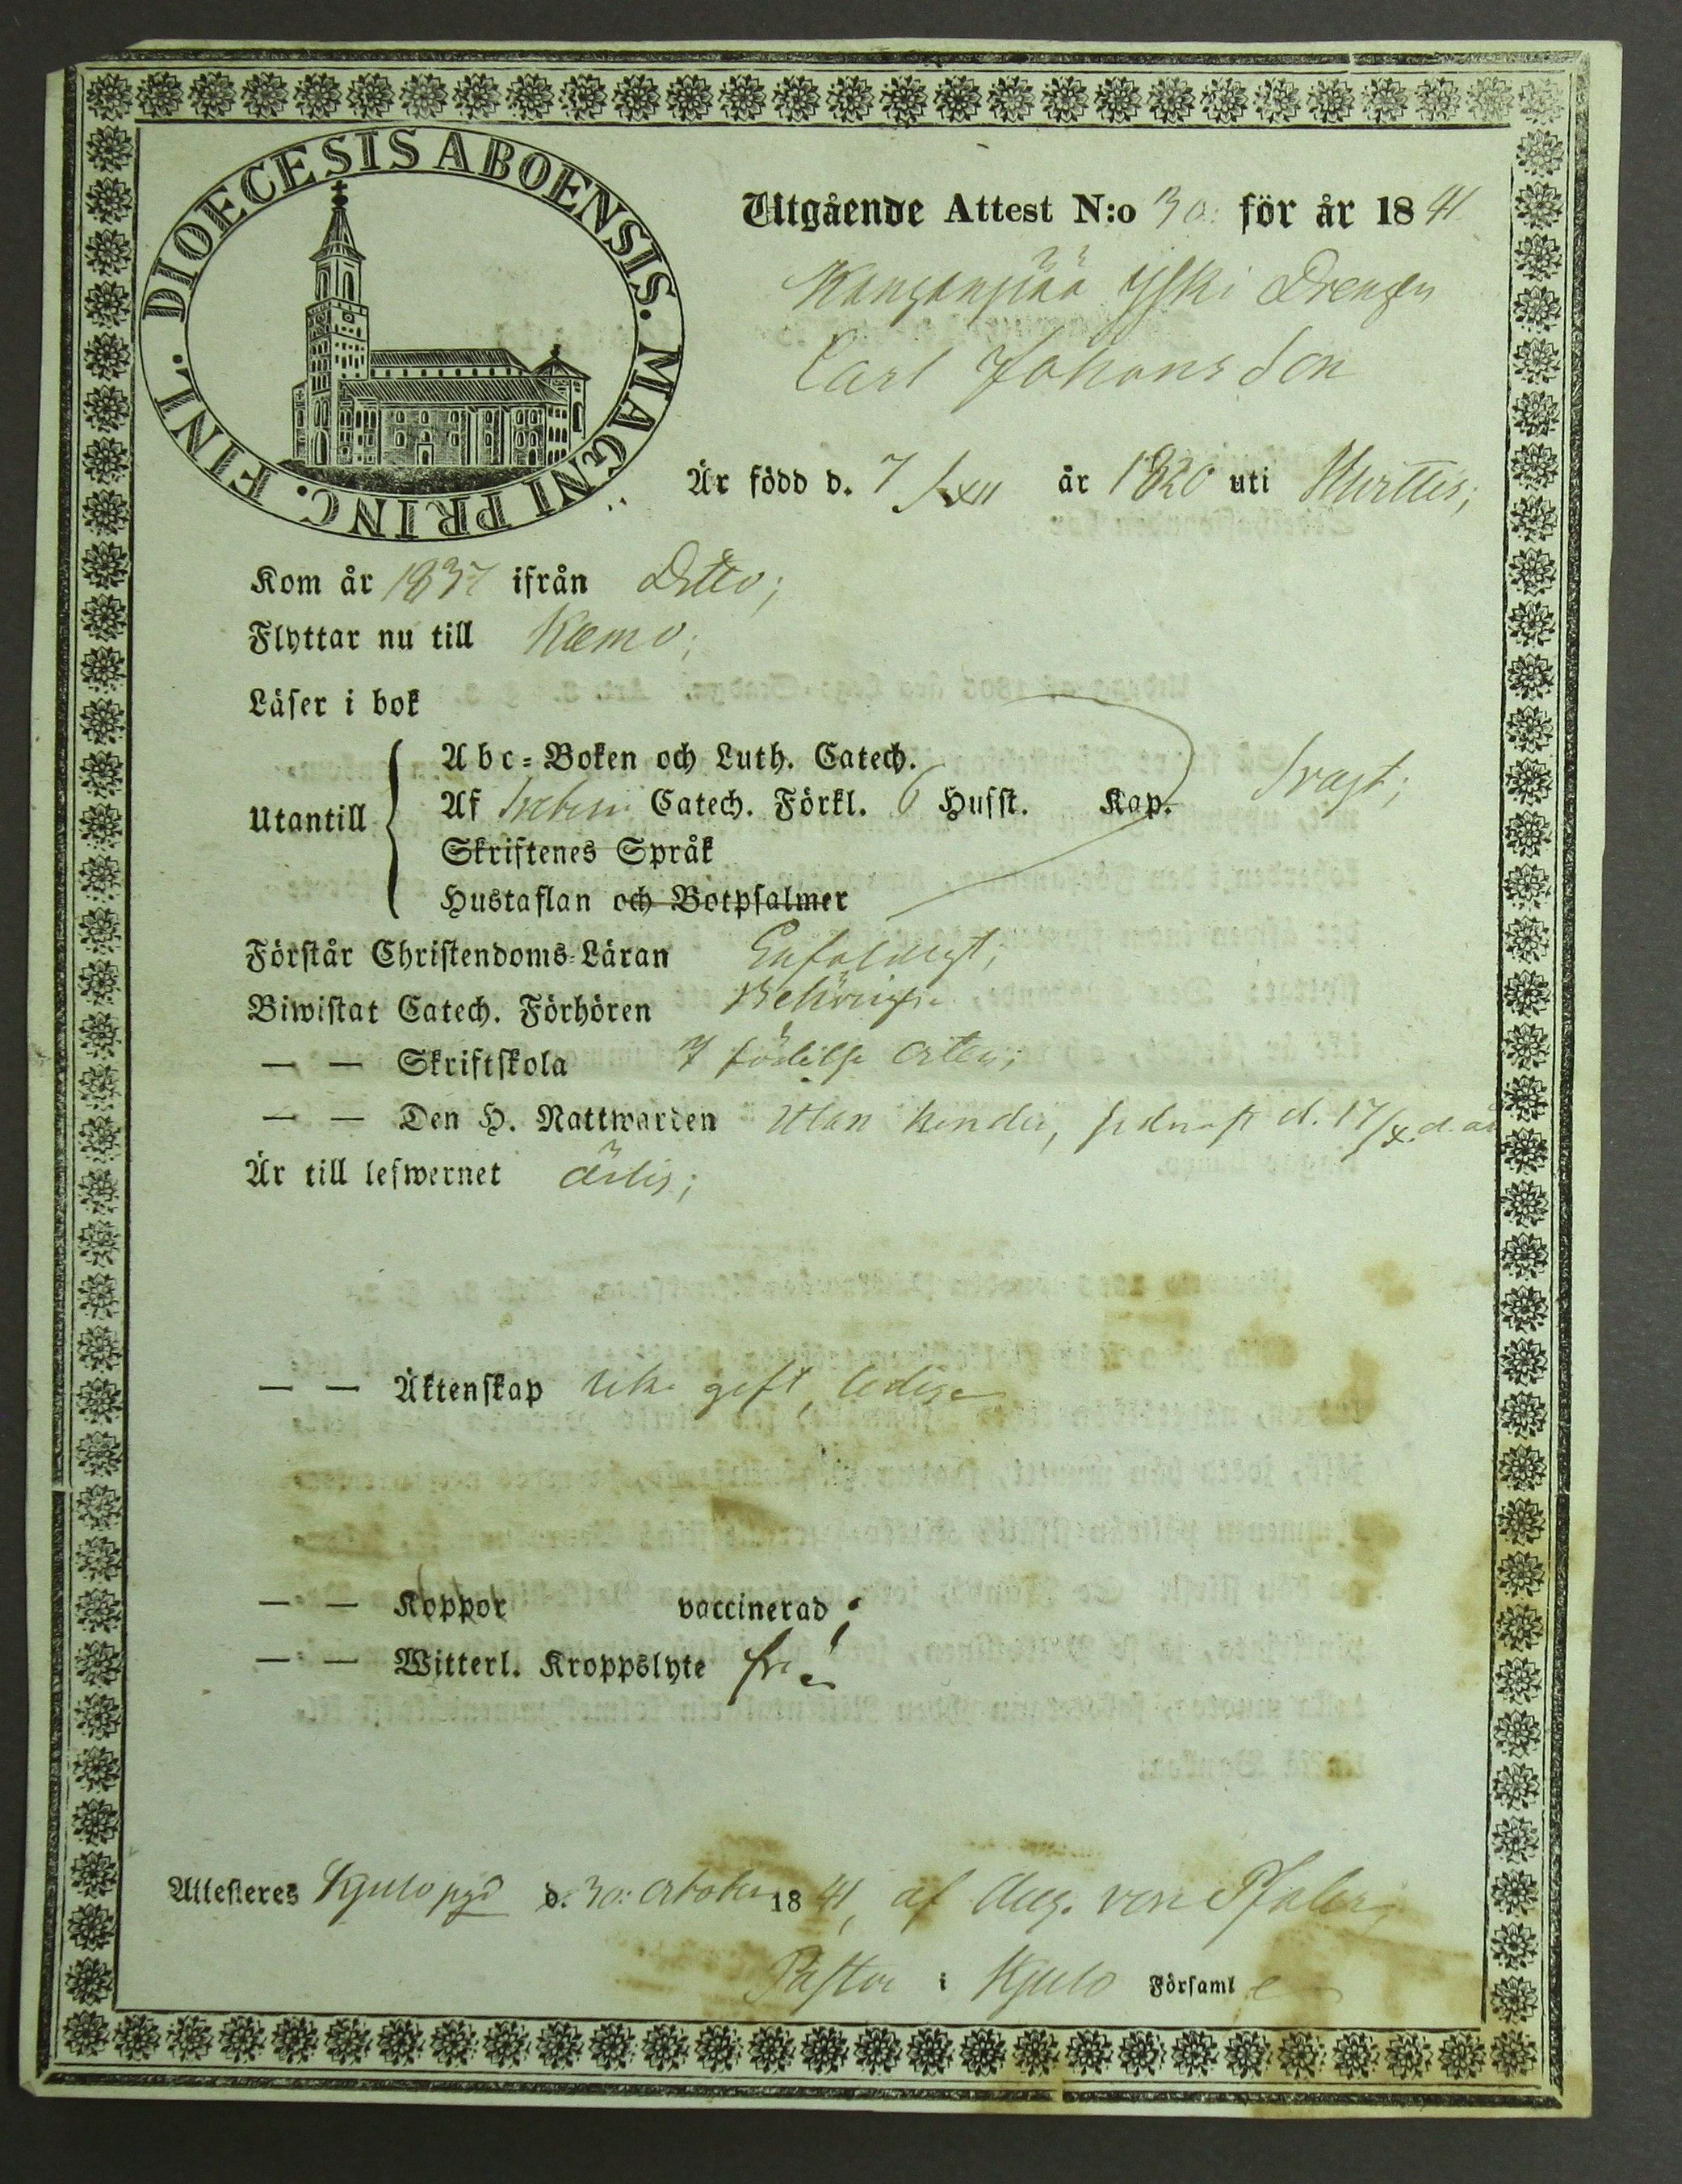 DIOECESIS ABOENSIS. MAGNI PRINC. FINL.
Utgående Attest N:o 30: för år 1841
Kanganpää Yski Drengen
Carl Johansson
Är född d. 7/XII år 1820 uti Hvittis;
Kom år 1837 ifrån Ditto;
Flyttar nu till Kumo;
Läser i bok
Utantill
Abc-Boken och Luth. Catech.
Af Svebeli Catech. Förkl. 6 Husst. Kap. Svagt;
Skriftenes Språk
Hustaflan och Botpsalmer
Förstår Christendoms-Läran Enfaldigt;
Biwistat Catech. Förhören Behörigt.
— — Skriftskola I födelse orten;
— — Den H. Nattwarden Utan hinder, sednast d. 17/X. d. år
Är till lefwernet ärlig;
— — Äktenskap icke gift, ledig
— — Koppor vaccinerad;
— — Witterl. Kroppslyte fri
Attesteres Kjulo pgd d. 30: October 1841, af Aug. von Pfaler,
Pastor i Kjulo Församl